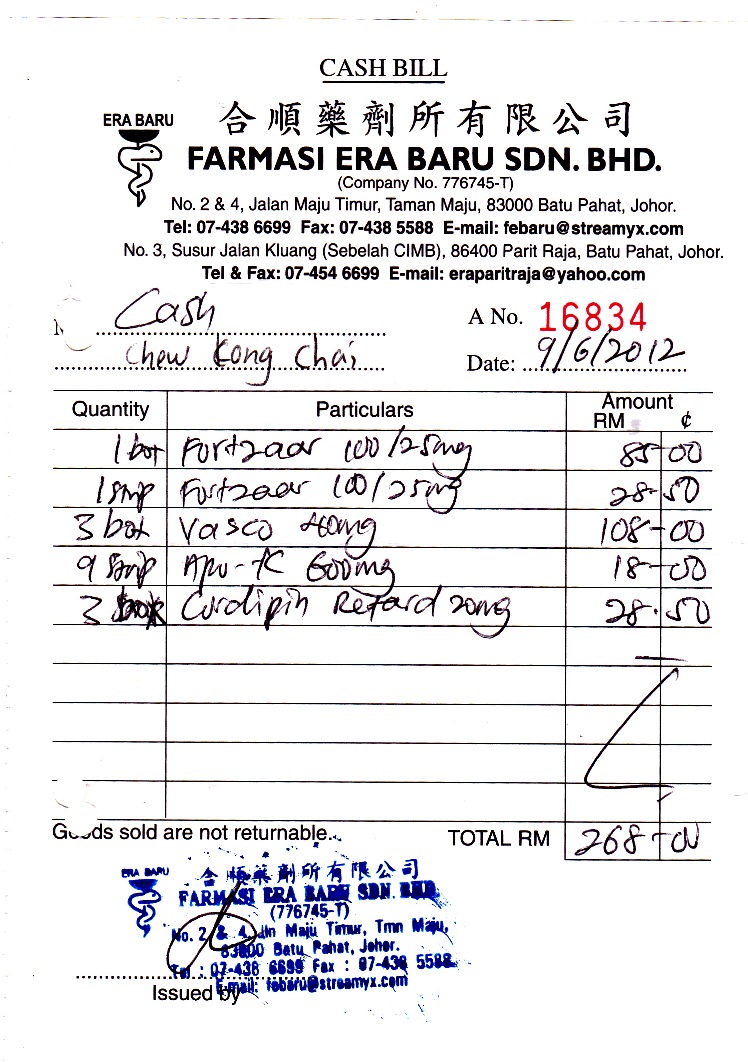 CASH BILL
ERA BARU
合順藥劑所有限公司
FARMASI ERA BARU SDN. BHD.
(Company No. 776745-T)
No. 2 & 4, Jalan Maju Timur, Taman Maju, 83000 Batu Pahat, Johor.
Tel: 07-438 6699 Fax: 07-438 5588 E-mail: febaru@streamyx.com
No. 3, Susur Jalan Kluang (Sebelah CIMB), 86400 Parit Raja, Batu Pahat, Johor.
Tel & Fax: 07-454 6699 E-mail: eraparitraja@yahoo.com
Cash
A No. 16834
Chew Kong Chai
Date: 9/6/2012
Quantity Particulars Amount
RM ¢
1 bot Fortzaar 100/25mg 85-00
1 stmp Fortzaar 100/25mg 28-50
3 bot Vasco 108-00
9 stmp 600mg 18-00
3 Cordipin Retard 20mg 28.50
Goods sold are not returnable.
TOTAL RM 268-00
ERA BARU
合順藥劑所有限公司
FARMASI ERA BARU SDN. BHD.
(776745-T)
No. 2 & 4, Jln Maju Timur, Tmn Maju,
83000 Batu Pahat, Johor.
Tel : 07-438 6699 Fax : 07-438 5588
E-mail: febaru@streamyx.com
Issued by